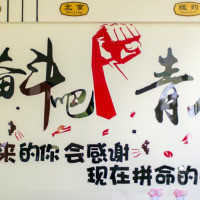 北京 纽约
奋斗吧 青
来的你会感谢
现在拼命的